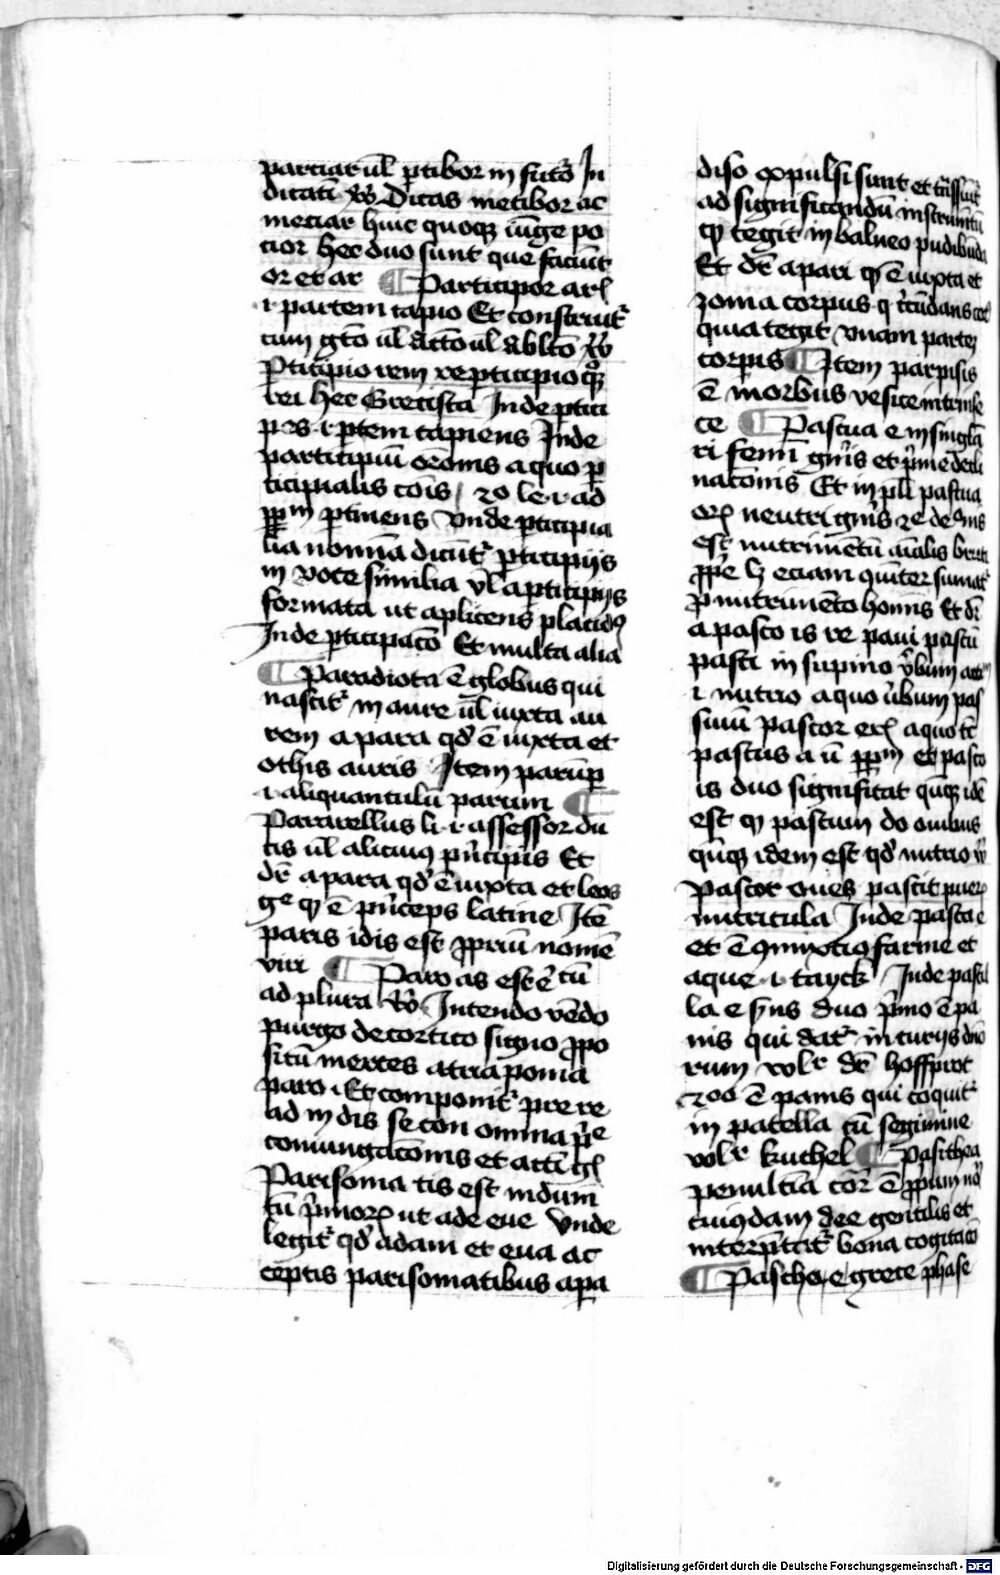 parciar ul̄ ꝑtibor in futō In
dicatī v̓ Dicas metibor ac
meciar huic quoqꝫ iūge po
cior hec duo sunt que faciūt
or et ar ¶ Participor arꝭ
.i. partem capio Et construit᷑
cum gtō ul̄ actō ul̄ ablatō v̓
Pticipio rem re ꝑticipioqꝫ
rei hec Grecista Inde ꝑtici
p̄s .i. ꝑtem capiens Inde
participiū orōnis a quo ꝑ
ticipialis cōis 20 le .i. ad
ꝑꝑm ꝑtinens Vnde ꝑticipia
lia nomīa dicūt᷑ ꝑticipijs
in voce similia vl̄ a ꝑticipijs
formata ut a placens placidꝰ
Inde ꝑticipacō Et multa alia
¶ Paradiota ē globus qui
nascit᷑ in aure ul̄ iuxta au
rem a para qd̓ ē iuxta et
othis auris Item parūꝑ
.i. aliquantulū parum ¶
Pararellus li .i. assessor du
cis ul̄ alicuiꝰ pͥncipis Et
dr̄ a para qd̓ ē iuxta et leos
ge qͥ ē pͥnceps latine Itē
paris idis est ꝓpriū nomē
viri ¶ Paro as est ꝟ tū
ad plura v̓ Intendo vēdo
purgo decortico signo ꝓpo
sitū merces atria poma
paro .i. Et componit᷑ pre re
ad in dis se con omnia pͥe
coniungacōnis et actī gꝭ
Parisoma tis est indum
tū pͥmoꝝ ut ade eue Vnde
legit᷑ qd̓ adam et eua ac
ceptis parisomatibus a pa
diso expulsi sunt et
ad significandū instrumtū
qͥ tegit in balneo pudibūda
Et dr̄ a pari qͥ ē iuxta et
zoma corpus q̓ cͥcūdans
quia tegit vnam partē
corpis ¶ Item parpisis
ē morbus vesice intrinse
ce ¶ Pascua e in singlā
ri feminī gnͥis et pͥme decli
nacōnis Et in pll̄i pascua
orꝝ neutri gnͥis
est nutrimētū aīalis bruti
ꝓꝓe lꝫ eciam qn̄ter sumat᷑
ꝓ nutrimēto hoīnis Et dr̄
a pasco is re paui pascū
pasci in supino ꝟbum
.i. nutrio a quo ꝟbum pas
siuū pascor erꝭ a quo
pastus a ū ꝑꝑm et pasco
is duo significat qn̄qꝫ idē
est qͥ pastum do ouibus
qn̄qꝫ idem est qd̓ nutrio v̓
Pastor oues pascit pueꝝ
nutricula Inde pasta e
et ē ꝯmixtio farine et
aque .i. tayck Inde pastil
la e syns duo pͥmo ē pa
nis qui dat᷑ in curijs dn̄o
rum volr̄ dr̄ hoffprot
2do ē panis qui coquit᷑
in patella cū segimine
volr̄ kuchel ¶ Pasithea
penultīa cor̄ ē ꝓprium nō
cuiꝰdam dee gentilis et
interpͥtat᷑ bona cogitacō
¶ Pascha e grece phase